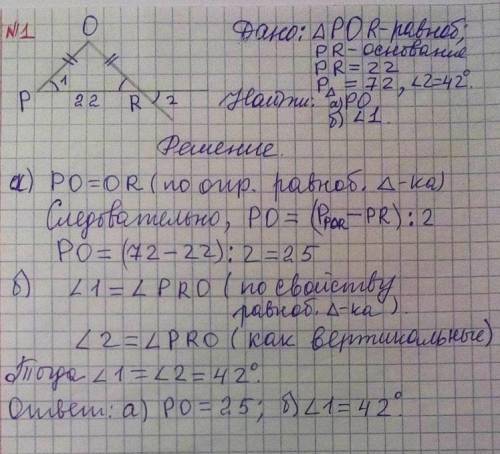 №1
O
1
P 22 R 2
Дано: △POR-равноб;
PR-основание
PR=22
P△=72, ∠2=42°.
Найти: а) PO
б) ∠1.
Решение.
а) PO=OR (по опр. равноб. △-ка)
Следовательно, PO=(P_POR-PR):2
PO=(72-22):2=25
б) ∠1=∠PRO (по свойству
равноб. △-ка).
∠2=∠PRO (как вертикальные)
Тогда ∠1=∠2=42°.
Ответ: а) PO=25; б) ∠1=42°.